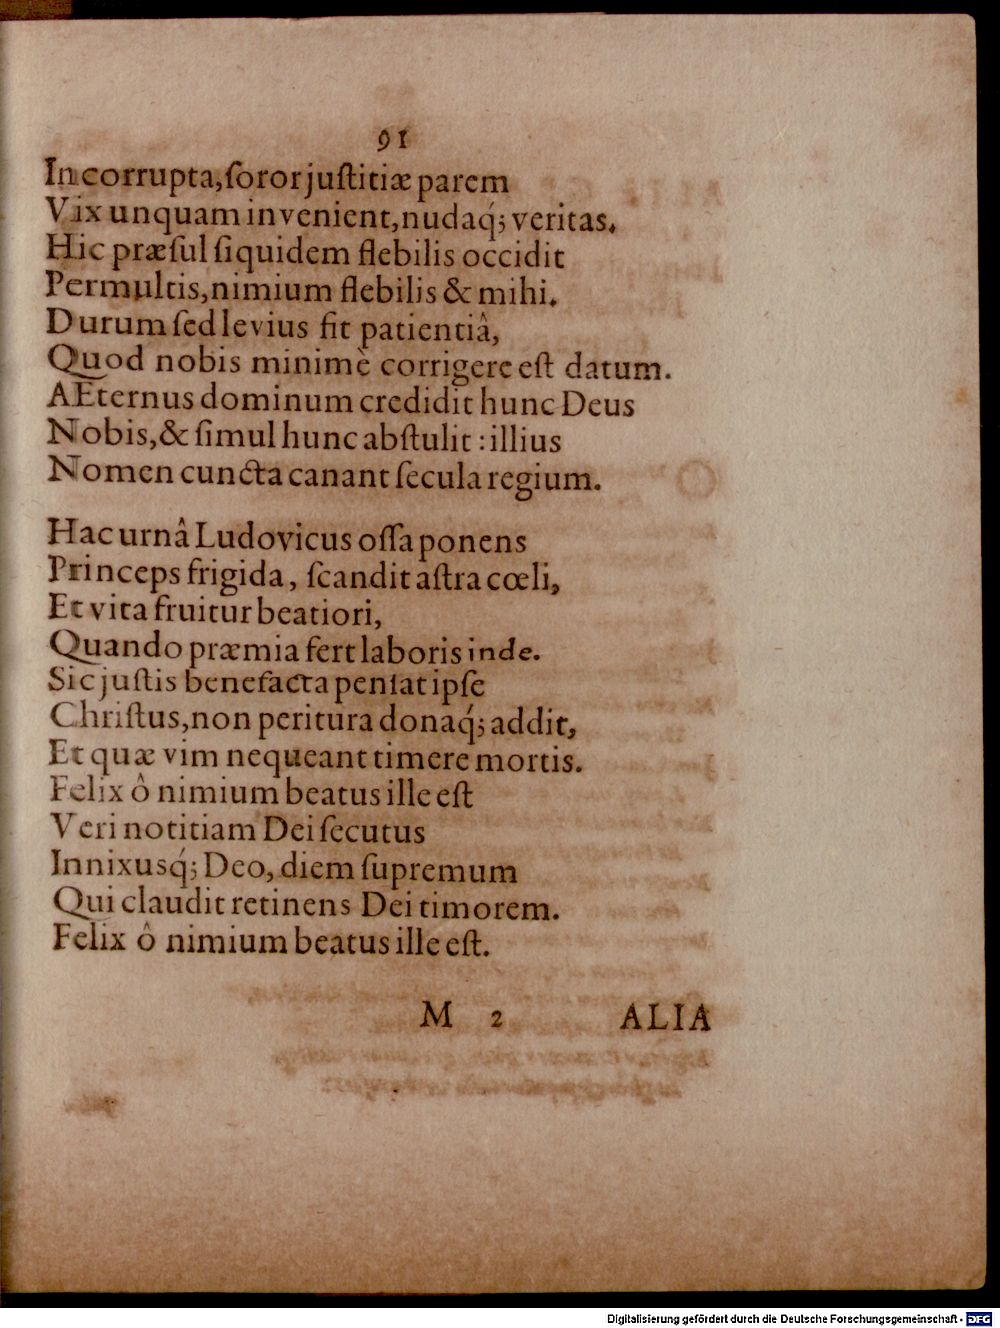 91
Incorrupta, ſoror juſtitiæ parem
Vix unquam invenient, nudaq́; veritas.
Hic præſul ſiquidem flebilis occidit
Permultis, nimium flebilis & mihi.
Durum ſed levius fit patientiâ,
Quod nobis minimè corrigere eſt datum.
AEternus dominum credidit hunc Deus
Nobis, & ſimul hunc abſtulit : illius
Nomen cuncta canant ſecula regium.
Hac urnâ Ludovicus oſſa ponens
Princeps frigida, ſcandit aſtra cœli,
Et vita fruitur beatiori,
Quando præmia fert laboris inde.
Sic juſtis benefacta penſat ipſe
Chriſtus, non peritura donaq́; addit,
Et quæ vim nequeant timere mortis.
Felix ô nimium beatus ille eſt
Veri notitiam Dei ſecutus
Innixusq́; Deo, diem ſupremum
Qui claudit retinens Dei timorem.
Felix ô nimium beatus ille eſt.
M 2 ALIA
Digitalisierung gefördert durch die Deutsche Forschungsgemeinschaft - DFG